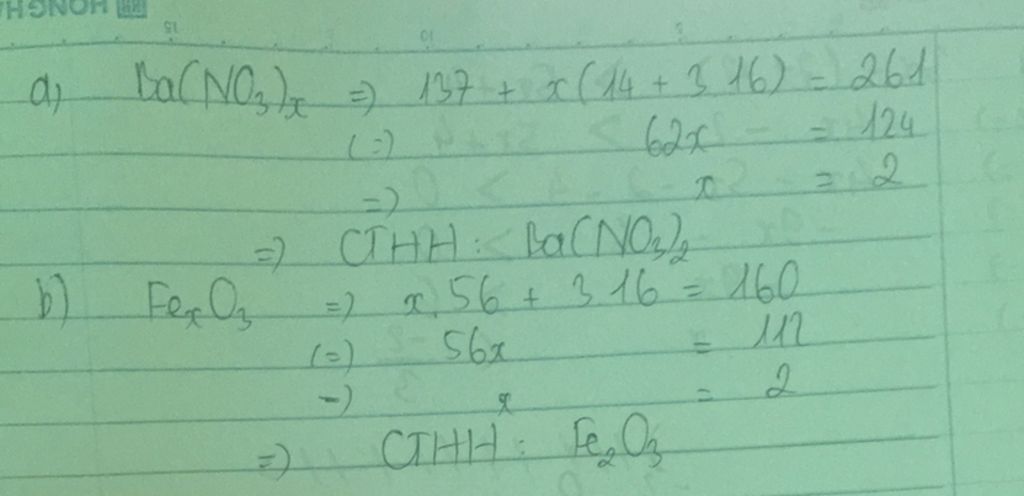 HONGHA
a) Ba(NO₃)ₓ => 137 + x(14 + 3 16) = 261
(=) 62x = 124
=) x = 2
=) CTHH : Ba(NO₃)₂
b) FeₓO₃ => x.56 + 3 16 = 160
(=) 56x = 112
-) x = 2
=) CTHH : Fe₂O₃